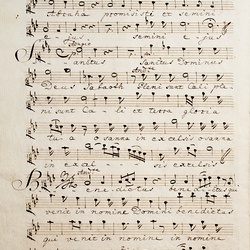 Abrahae promisisti et semini
ejus semini ejus
Adagio
Sanctus Sanctus Dominus
Deus Sabaoth Pleni sunt caeli ple-
ni sunt caeli et terra gloria
tu a o sanna in excelsis osanna
in excel sis excelsis
Andante
Benedictus benedictus qui
venit in nomine Domini benedictus
qui venit in nomine in nomine